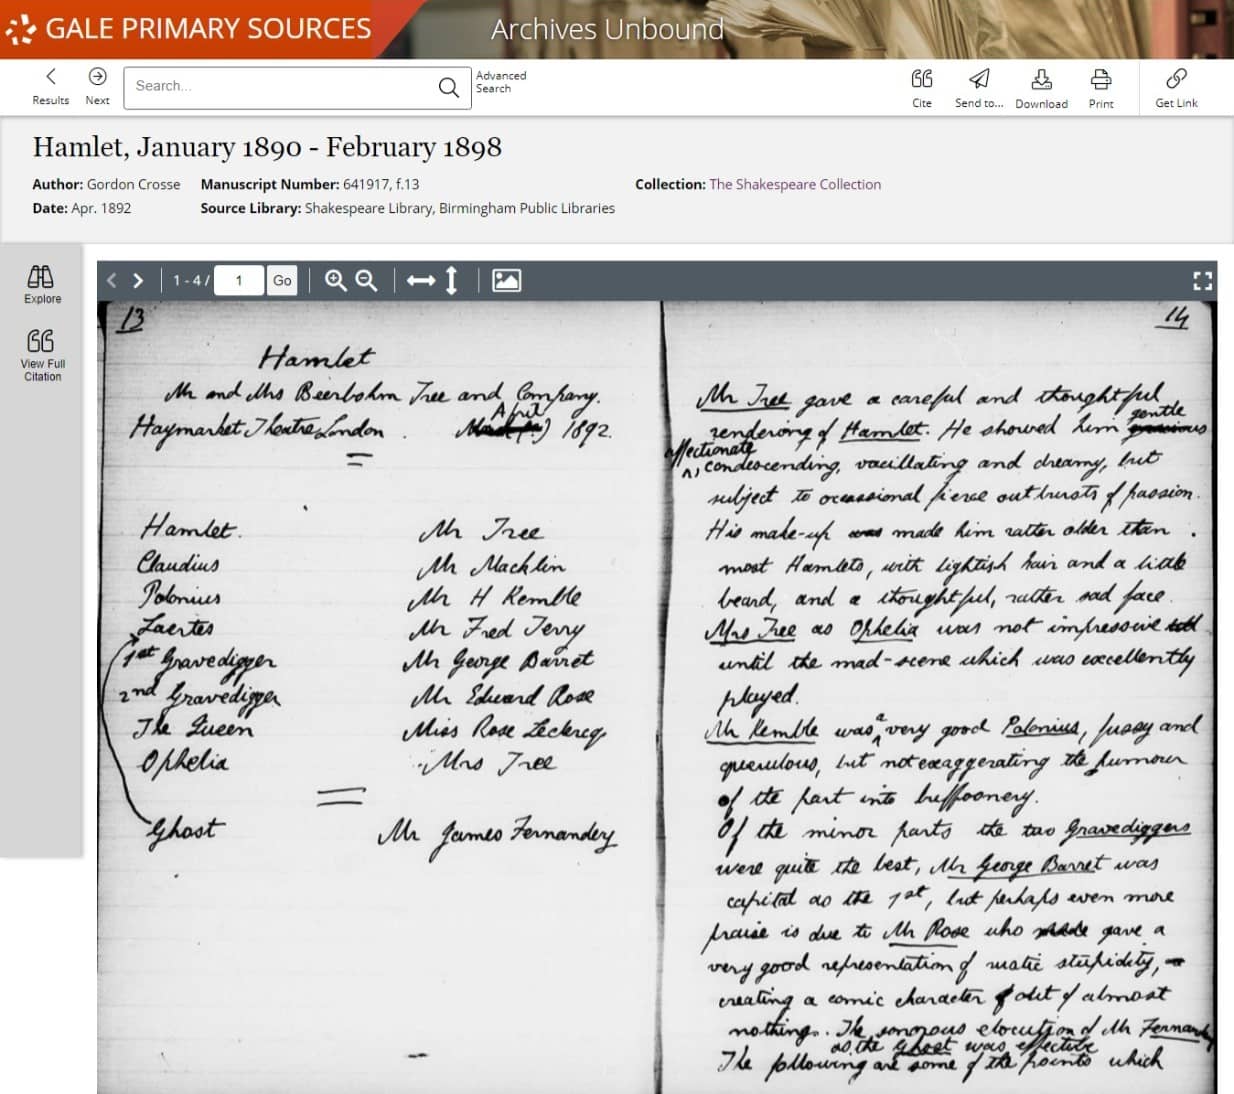 GALE PRIMARY SOURCES
Archives Unbound
Results
Next
Search...
Advanced
Search
Cite
Send to...
Download
Print
Get Link
Hamlet, January 1890 - February 1898
Author: Gordon Crosse Manuscript Number: 641917, f.13 Collection: The Shakespeare Collection
Date: Apr. 1892 Source Library: Shakespeare Library, Birmingham Public Libraries
Explore
View Full
Citation
1 - 4 / 1 Go
13
Hamlet
Mr and Mrs Beerbohm Tree and Company.
April
Haymarket Theatre London. 1892.
Hamlet. Mr Tree
Claudius Mr Macklin
Polonius Mr H Kemble
Laertes Mr Fred Terry
1st Gravedigger Mr George Barret
2nd Gravedigger Mr Edward Rose
The Queen Miss Rose Leclercq
Ophelia Mrs Tree
Ghost Mr James Fernandez
14
Mr Tree gave a careful and thoughtful
gentle
rendering of Hamlet. He showed him gracious
affectionate
condescending, vacillating and dreamy, but
subject to occassional fierce outbursts of passion.
His make-up was made him rather older than
most Hamlets, with lightish hair and a little
beard, and a thoughtful, rather sad face.
Mrs Tree as Ophelia was not impressive till
until the mad-scene which was excellently
played.
Mr Kemble was a very good Polonius, fussy and
querulous, but not exaggerating the humour
of the part into buffoonery.
Of the minor parts the two Gravediggers
were quite the best, Mr George Barret was
capital as the 1st, but perhaps even more
praise is due to Mr Rose who made gave a
very good representation of rustic stupidity,
creating a comic character out of almost
nothing. The sonorous elocution of Mr Fernandez
as the Ghost was effective
The following are some of the points which